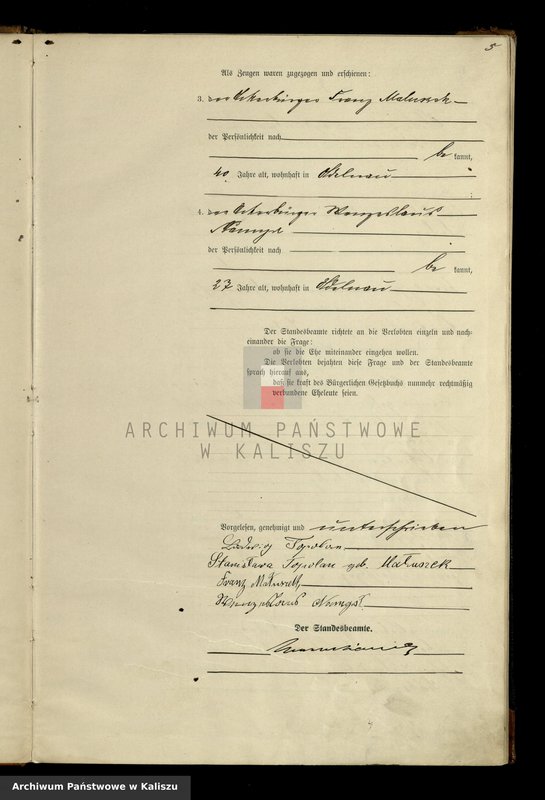 5
Als Zeugen waren zugezogen und erschienen:
3. der Ackerbürger Franz Matuszek
der Persönlichkeit nach
be kannt,
40 Jahre alt, wohnhaft in Adelnau
4. der Ackerbürger Wenzeslaus
der Persönlichkeit nach
be kannt,
27 Jahre alt, wohnhaft in Adelnau
Der Standesbeamte richtete an die Verlobten einzeln und nach-
einander die Frage:
ob sie die Ehe miteinander eingehen wollen.
Die Verlobten bejahten diese Frage und der Standesbeamte
sprach hierauf aus,
daß sie kraft des Bürgerlichen Gesetzbuchs nunmehr rechtmäßig
verbundene Eheleute seien.
ARCHIWUM PAŃSTWOWE
W KALISZU
Vorgelesen, genehmigt und unterschrieben
Ludwig Topolan
Stanisława Topolan geb. Matuszek
Franz Matuszek
Wenzeslaus
Der Standesbeamte.
Archiwum Państwowe w Kaliszu